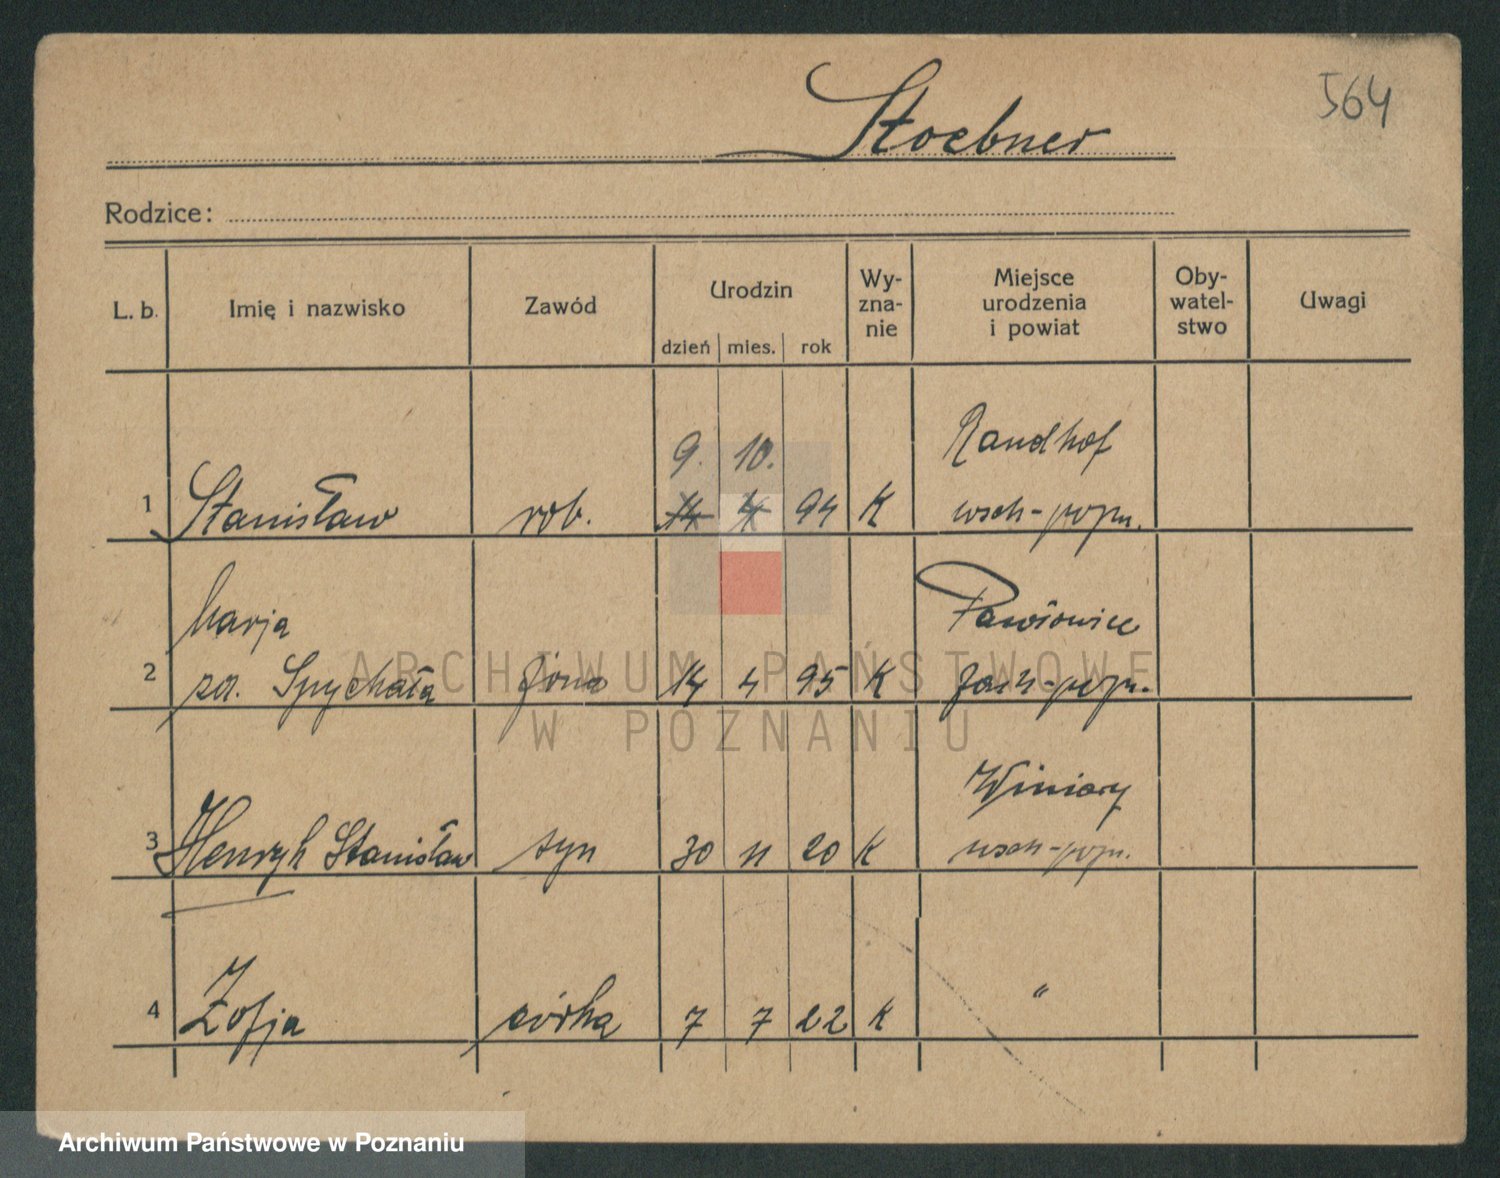 564
Stoebner
Rodzice:
L. b. Imię i nazwisko Zawód Urodzin dzień mies. rok Wy-zna-nie Miejsce urodzenia i powiat Oby-watel-stwo Uwagi
9. 10. Randhof
1 Stanisław rob. 14 4 94 K wsch-pozn.
Marja Pawłowice
2 zd. Spychała żona 14 4 95 K zach-pozn.
Winiary
3 Henryk Stanisław syn 30 11 20 K wsch-pozn.
4 Zofja córka 7 7 22 K "
ARCHIWUM PAŃSTWOWE
W POZNANIU
Archiwum Państwowe w Poznaniu